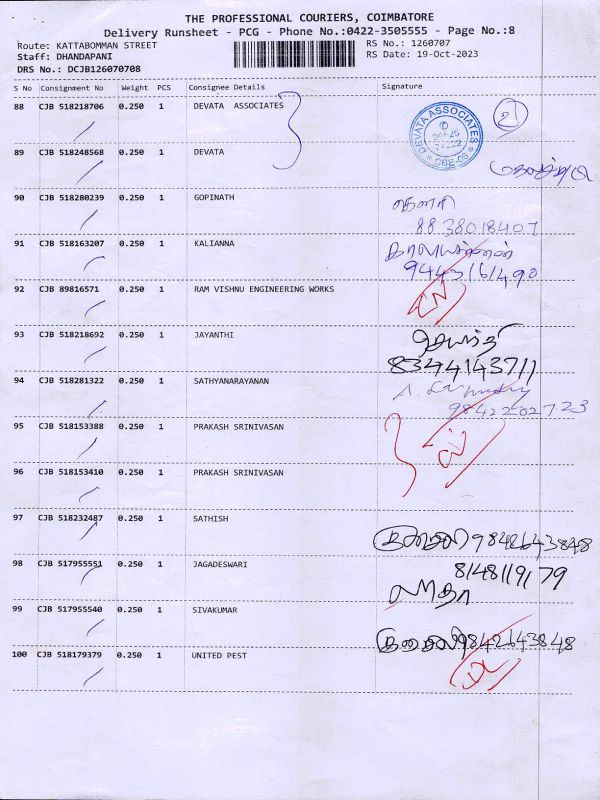 THE PROFESSIONAL COURIERS, COIMBATORE
Delivery Runsheet - PCG - Phone No.:0422-3505555 - Page No.:8
Route: KATTABOMMAN STREET
RS No.: 1260707
Staff: DHANDAPANI
RS Date: 19-Oct-2023
DRS No.: DCJB126070708
S No Consignment No Weight PCS Consignee Details Signature
88 CJB 518218706 0.250 1 DEVATA ASSOCIATES
DEVATA ASSOCIATES
CBE-06
2
89 CJB 518248568 0.250 1 DEVATA
90 CJB 518280239 0.250 1 GOPINATH
8838018407
91 CJB 518163207 0.250 1 KALIANNA
9443161490
92 CJB 89816571 0.250 1 RAM VISHNU ENGINEERING WORKS
93 CJB 518218692 0.250 1 JAYANTHI
ஜெயந்தி
8344143711
94 CJB 518281322 0.250 1 SATHYANARAYANAN
9842202723
95 CJB 518153388 0.250 1 PRAKASH SRINIVASAN
96 CJB 518153410 0.250 1 PRAKASH SRINIVASAN
97 CJB 518232487 0.250 1 SATHISH
98 CJB 517955551 0.250 1 JAGADESWARI
8148119179
99 CJB 517955540 0.250 1 SIVAKUMAR
9842643848
100 CJB 518179379 0.250 1 UNITED PEST